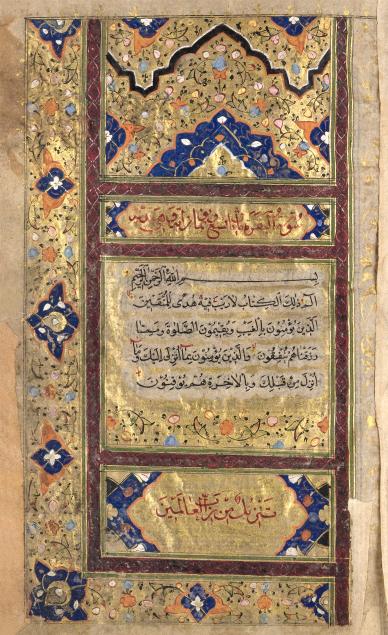 سورة البقرة مائتان وست وثمانون اية
بسم الله الرحمن الرحيم
الم ذلك الكتاب لا ريب فيه هدى للمتقين
الذين يؤمنون بالغيب ويقيمون الصلوة ومما
رزقناهم ينفقون والذين يؤمنون بما انزل اليك وما
انزل من قبلك وبالاخرة هم يوقنون
تنزيل من رب العالمين